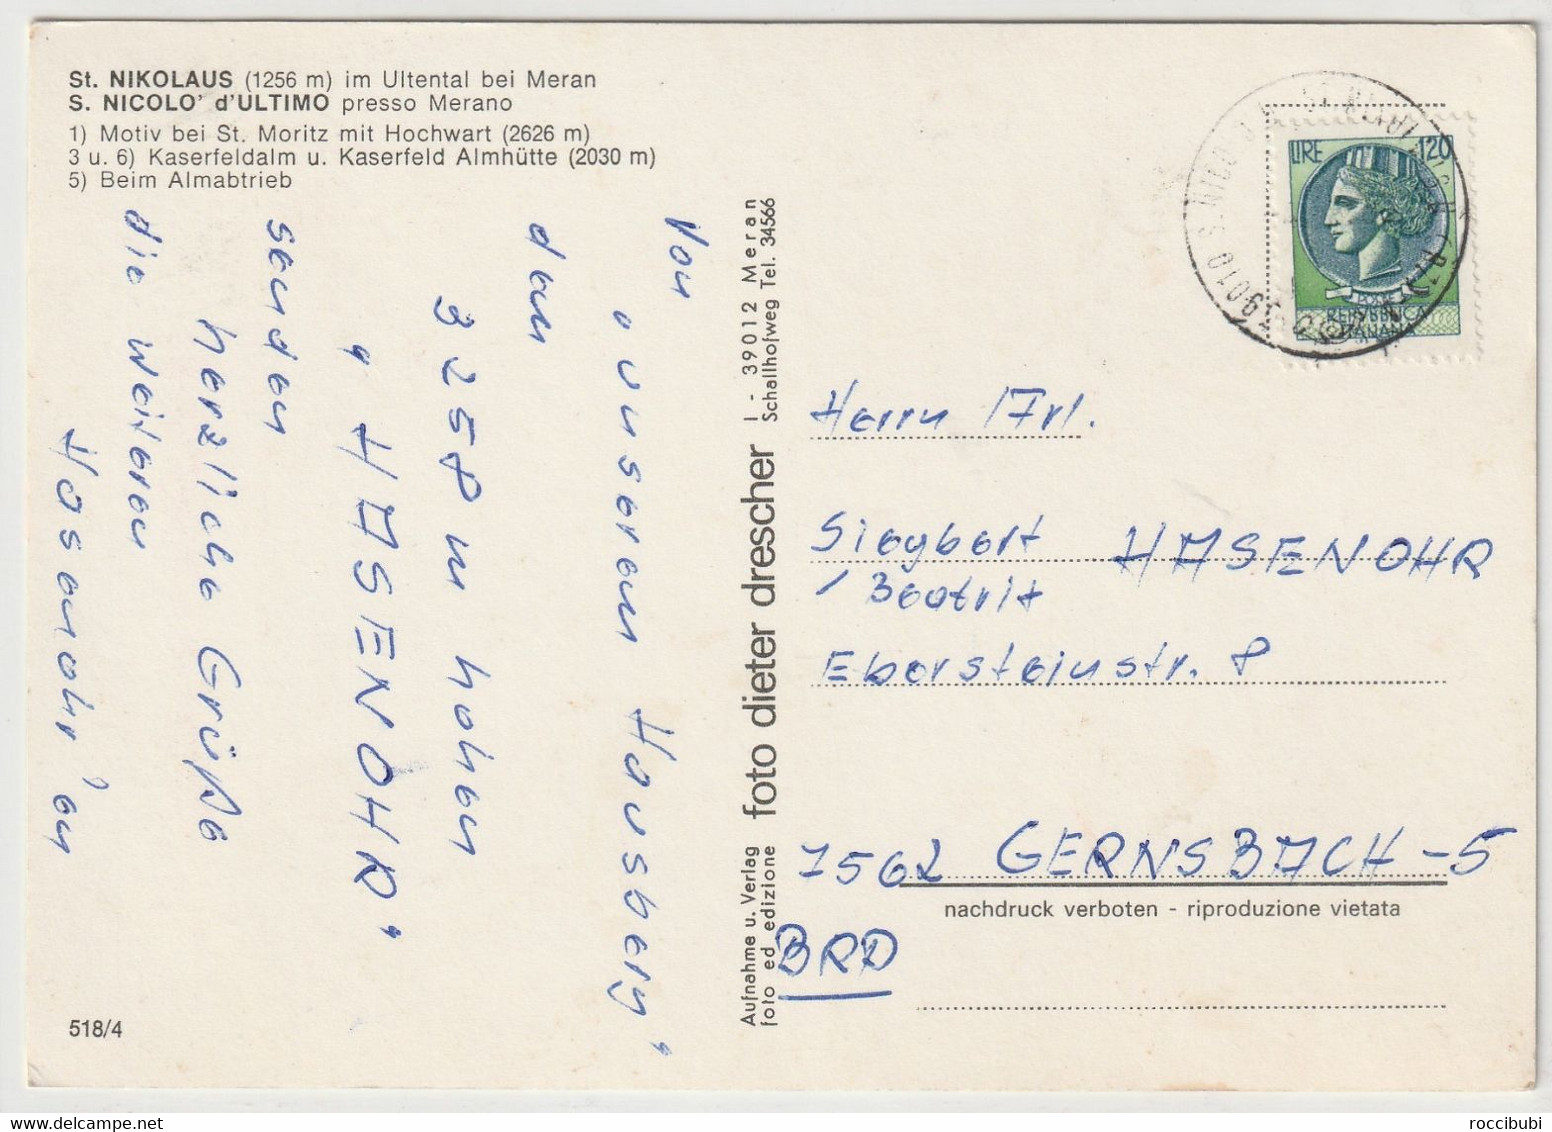 St. NIKOLAUS (1256 m) im Ultental bei Meran
S. NICOLO' d'ULTIMO presso Merano
1) Motiv bei St. Moritz mit Hochwart (2626 m)
3 u. 6) Kaserfeldalm u. Kaserfeld Almhütte (2030 m)
5) Beim Almabtrieb
Von
„unseren Hausberg"
dem
3258 m hohen
„HASENOHR"
senden
herzliche Grüße
die weiteren
Hasenohr'en
518/4
Aufnahme u. Verlag foto dieter drescher I - 39012 Meran
foto ed edizione Schallhofweg Tel. 34566
LIRE 120
REPVBBLICA
ITALIANA
Herrn / Frl.
Siegbert HASENOHR
/ Beatrix
Ebersteinstr. 8
7562 GERNSBACH-5
nachdruck verboten - riproduzione vietata
BRD
roccibubi